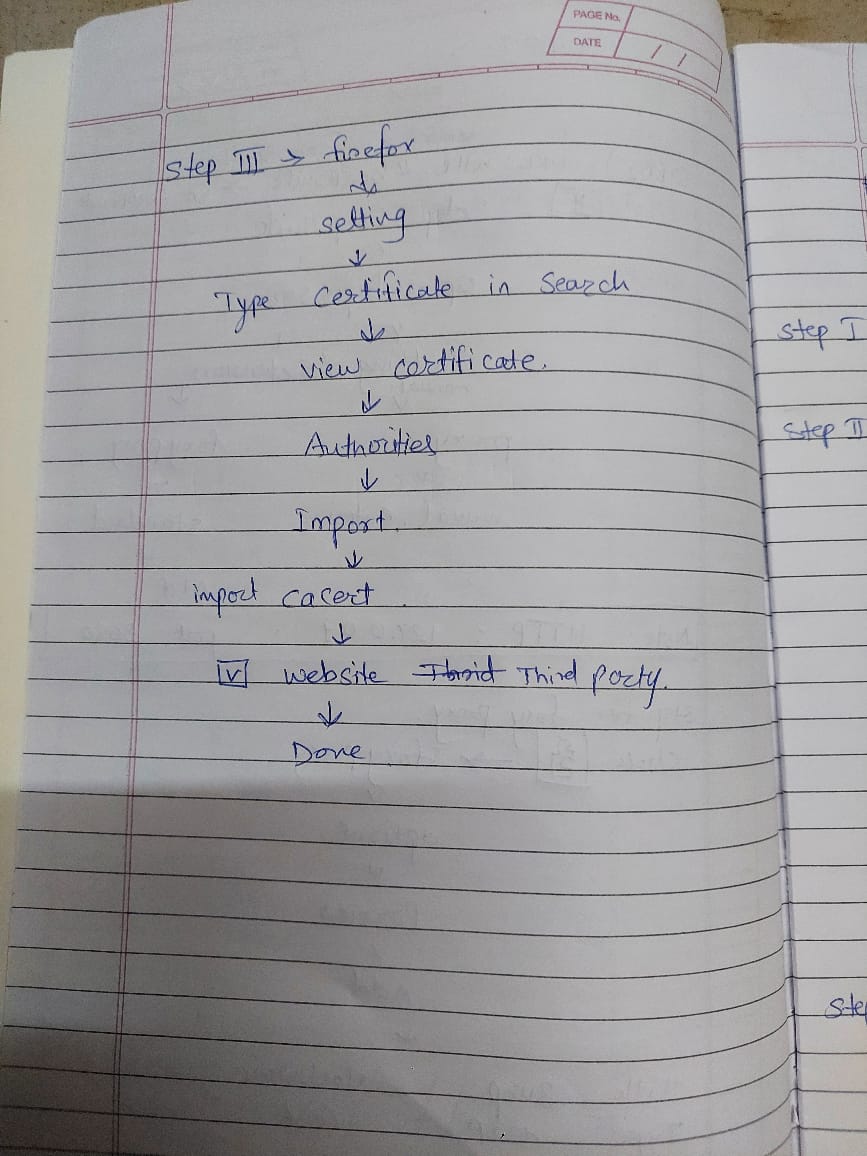 PAGE No.
DATE / /
Step III → firefor
↓
setting
↓
Type Certificate in Search
↓
view certificate.
↓
Authorities
↓
Import.
↓
import cacert.
↓
☑ website Third party.
↓
Done.
Step I
Step II
Ste